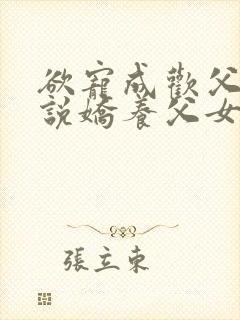 欲寵成歡父
說嬌養父女
張立東